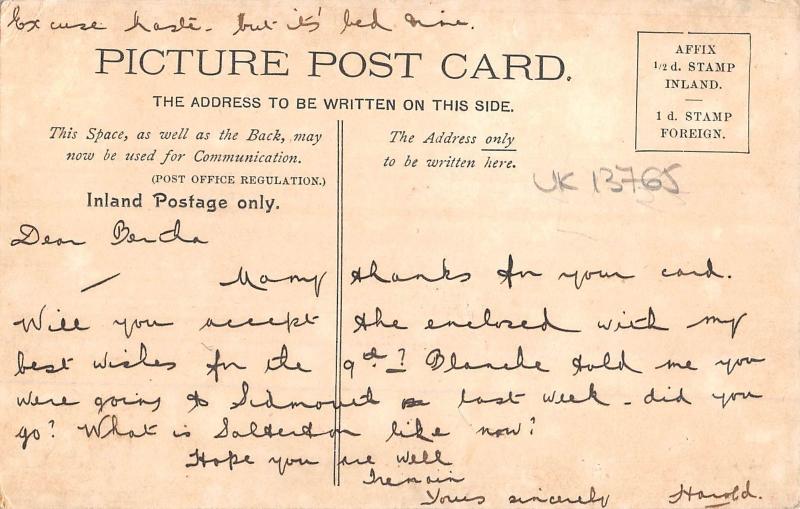 Excuse haste - but it's bed time.
PICTURE POST CARD.
THE ADDRESS TO BE WRITTEN ON THIS SIDE.
AFFIX
1/2 d. STAMP
INLAND.
1 d. STAMP
FOREIGN.
This Space, as well as the Back, may
now be used for Communication.
(POST OFFICE REGULATION.)
Inland Postage only.
The Address only
to be written here.
UK 13765
Dear
Many thanks for your card.
Will you accept the enclosed with my
best wishes for the 9th? Blanche told me you
were going to Sidmouth last week - did you
go? What is Salterton like now?
Hope you are well
I remain
Yours sincerely Harold.